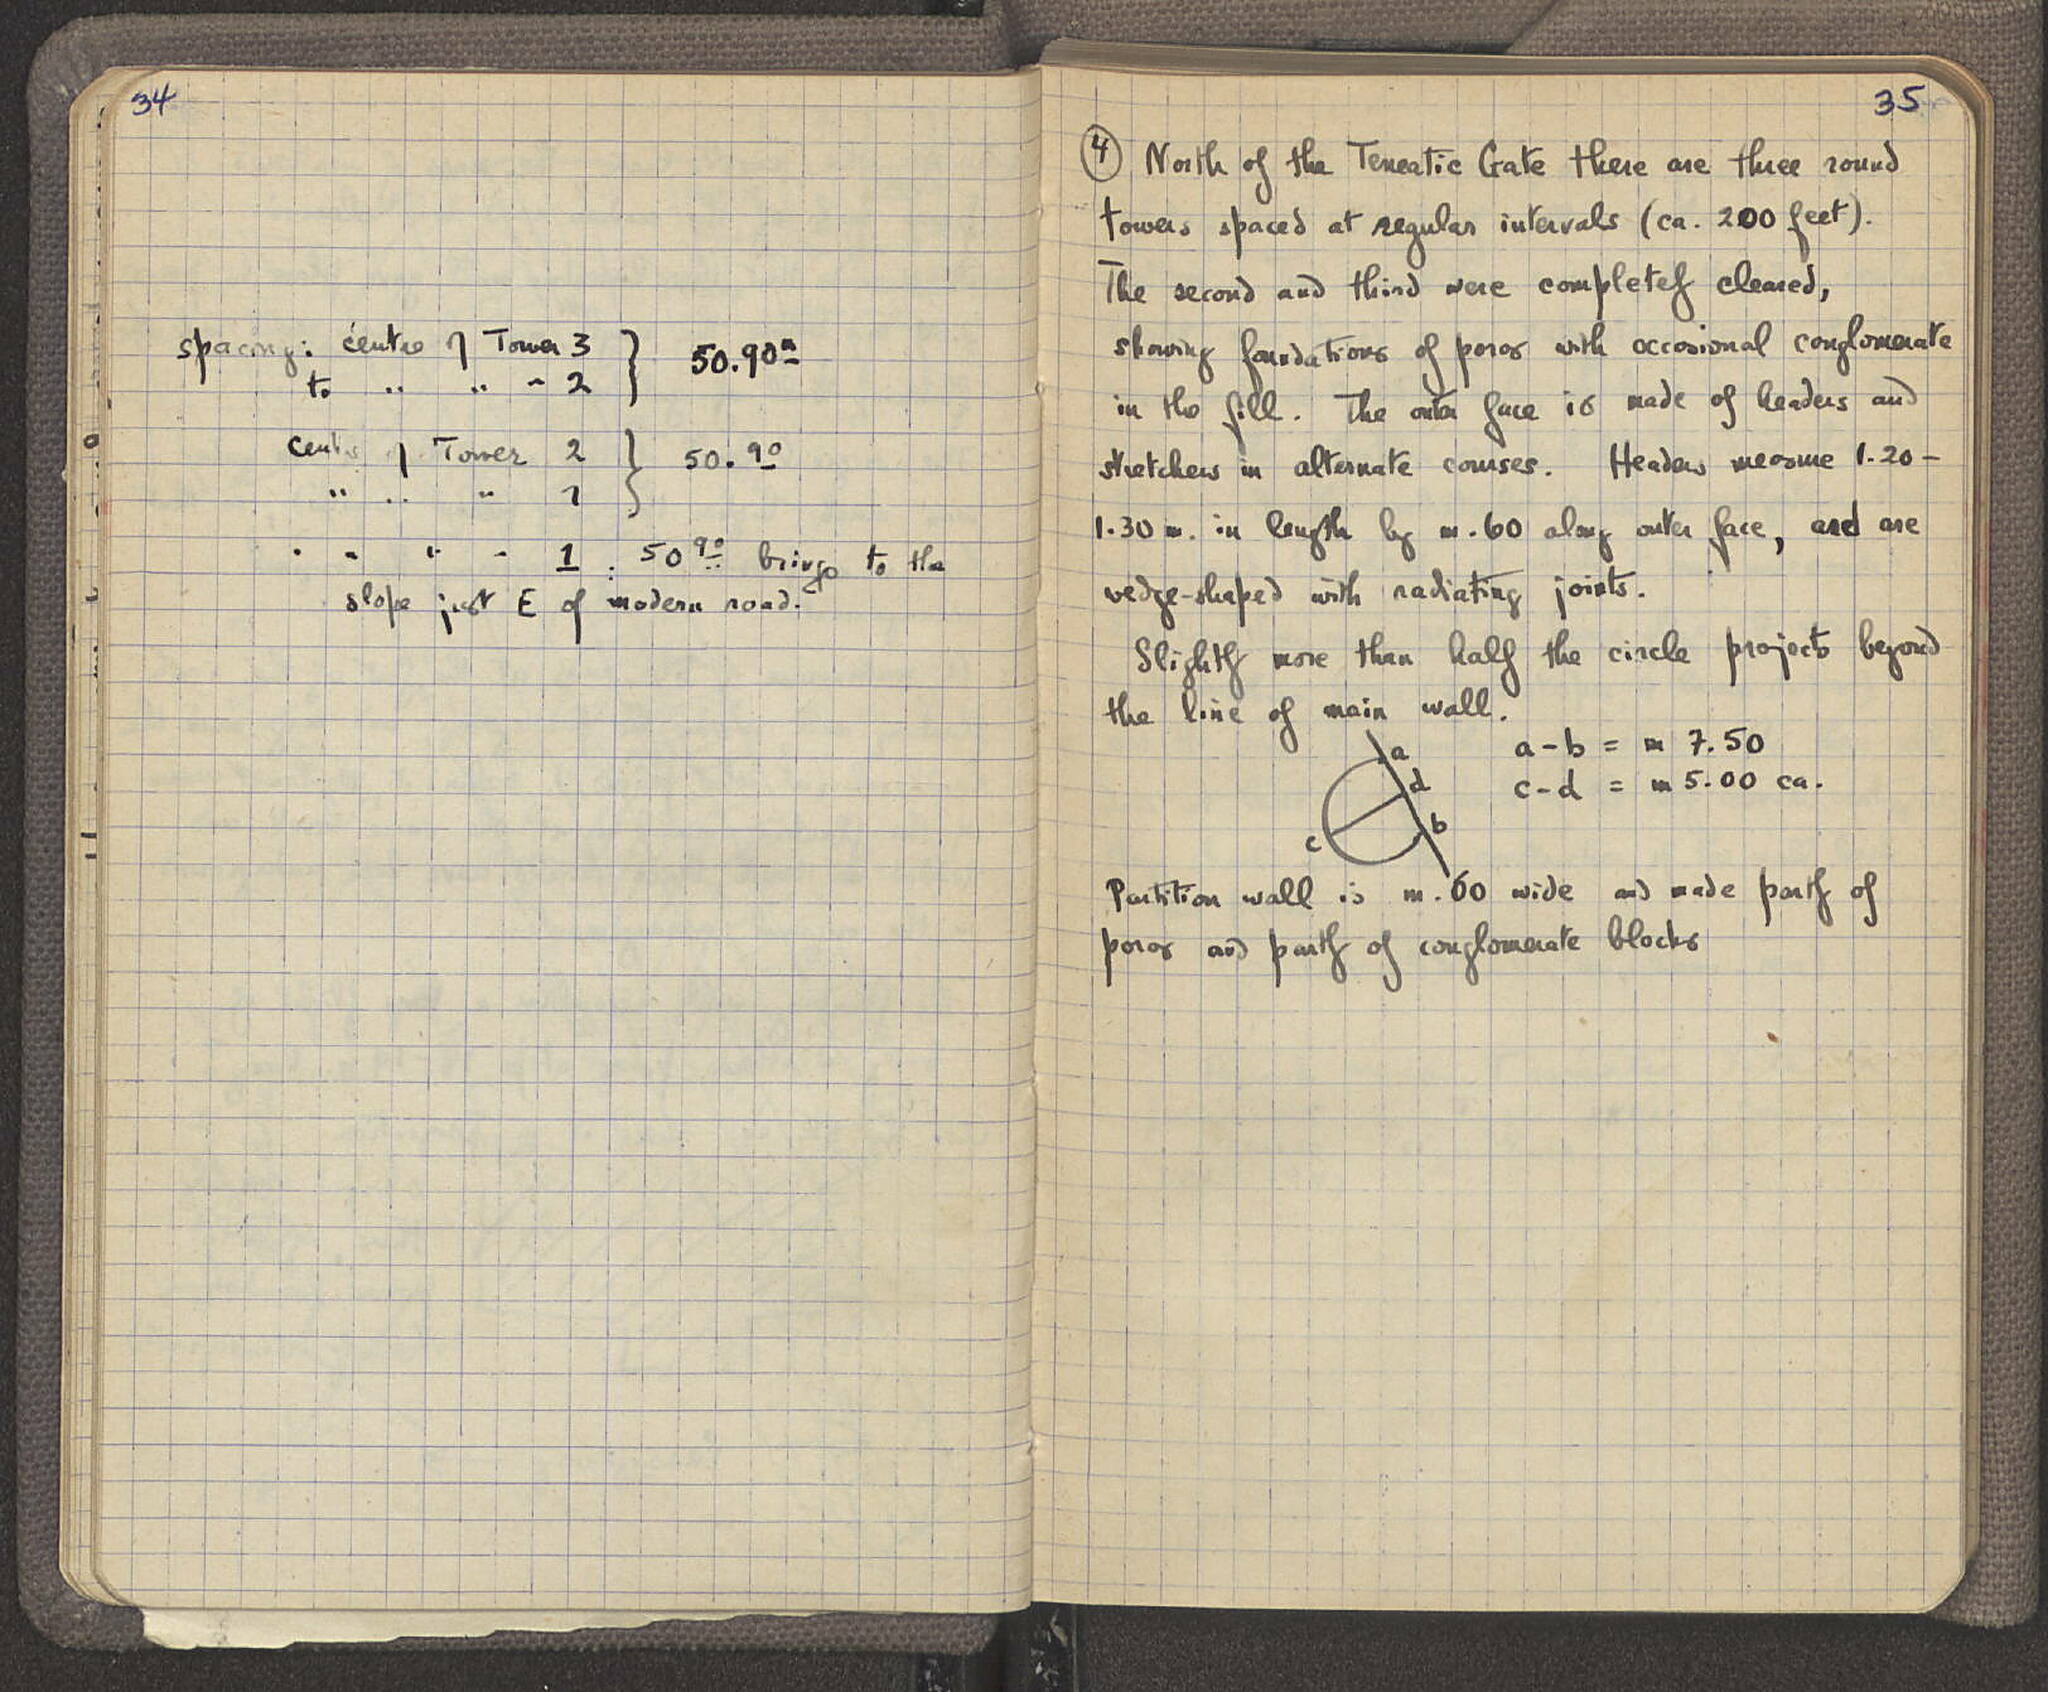 34
spacing: centre of Tower 3 } 50.90m
to " " " 2
centre of Tower 2 } 50.90
" " " 1
" " " " 1 : 50.90 brings to the
slope just E of modern road.
35
④ North of the Teneatic Gate there are three round
towers spaced at regular intervals (ca. 200 feet).
The second and third were completely cleared,
showing foundations of poros with occasional conglomerate
in the fill. The outer face is made of headers and
stretchers in alternate courses. Headers measure 1.20 –
1.30 m. in length by m. 60 along outer face, and are
wedge-shaped with radiating joints.
Slightly more than half the circle projects beyond
the line of main wall.
a
d
b
c
a-b = m 7.50
c-d = m 5.00 ca.
Partition wall is m. 60 wide and made partly of
poros and partly of conglomerate blocks